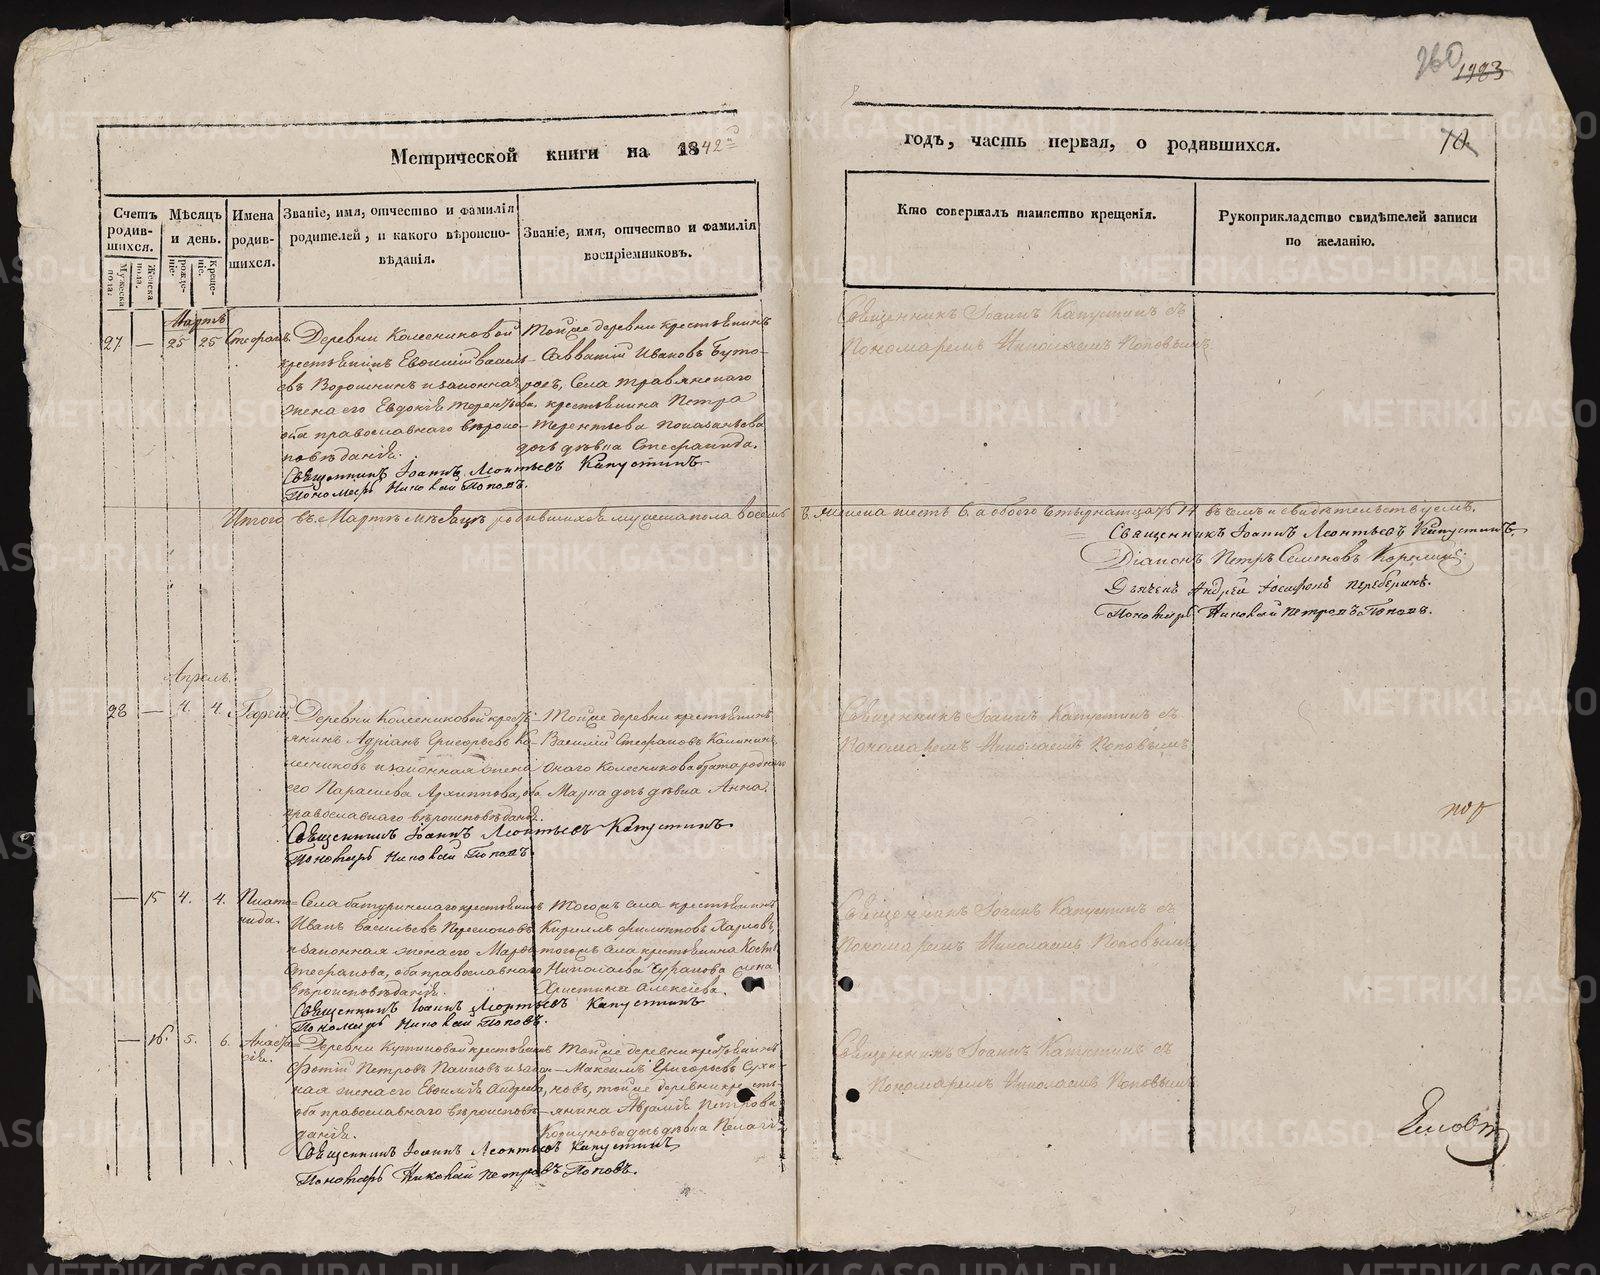 1983
10
Метрической книги на 1842
годъ, часть первая, о родившихся.
Счетъ родив-шихся.
Мужеска пола.
Женска пола.
Мѣсяцъ и день.
рожде-ніе.
Креще-ніе.
Имена родив-шихся.
Званіе, имя, отчество и фамилія
родителей, и какого вѣроиспо-
вѣданія.
Званіе, имя, отчество и фамилія
воспріемниковъ.
Кто совершалъ таинство крещенія.
Рукоприкладство свидѣтелей записи
по желанію.
Мартъ
27 — 25 25 Стефанъ
Деревни Колесниковой
крестьянинъ Евѳимій Василь-
евъ Ворошнинъ и законная
жена его Евдокія Терентьева,
оба православнаго вѣроис-
повѣданія.
Тойже деревни крестьянинъ
Савватій Ивановъ Буто-
ровъ, Села травянскаго
крестьянина Петра
Терентьева
дочь дѣвка Стефанида.
Священникъ Іоаннъ Капустинъ съ
Пономаремъ Николаемъ Поповымъ
Священникъ Іоаннъ Леонтьевъ Капустинъ
Пономарь Николай Поповъ.
Итого въ Мартѣ мѣсяцѣ родившихся мужеска пола восемь 8. женска шесть 6. а обоего четырнатцать 14 въ чемъ и свидѣтельствуемъ.
Священникъ Іоаннъ Леонтьевъ Капустинъ,
Діаконъ Петръ Семеновъ
Дьячекъ Андрей
Пономарь Николай Петровъ Поповъ.
Апрель.
28 — 4. 4. Георгій
Деревни Колесниковой кресть-
янинъ Адріанъ Григорьевъ Ко-
лесниковъ и законная жена
его Параскева Архиппова, оба
православнаго вѣроисповѣданія.
Тойже деревни крестьянинъ
Василій Стефановъ Калининъ,
онаго Колесникова брата роднаго
Марка дочь дѣвка Анна.
Священникъ Іоаннъ Капустинъ съ
Пономаремъ Николаемъ Поповымъ
Священникъ Іоаннъ Леонтьевъ Капустинъ
Пономарь Николай Поповъ.
— 15 4. 4.
Села батуринскаго крестьянинъ
Иванъ Васильевъ
и законная жена его Марѳа
Стефанова, оба православнаго
вѣроисповѣданія.
Тогожъ села крестьянинъ
Кириллъ Филипповъ Харловъ,
тогожъ села крестьянина
Николаева Чуракова жена
Христина Алексіева.
Священникъ Іоаннъ Капустинъ съ
Пономаремъ Николаемъ Поповымъ
Священникъ Іоаннъ Леонтьевъ Капустинъ
Пономарь Николай Поповъ.
— 16. 5. 6. Анаста-
сія.
Деревни крестьянинъ
Фотій Петровъ и закон-
ная жена его Евѳимія Андреева,
оба православнаго вѣроисповѣ-
данія.
Тойже деревни крестьянинъ
Максимъ Григорьевъ Суха-
новъ, тойже деревни кресть-
янина Авраамія Петрова
дочь дѣвка Пелагія
Священникъ Іоаннъ Капустинъ съ
Пономаремъ Николаемъ Поповымъ
Священникъ Іоаннъ Леонтьевъ Капустинъ
Пономарь Николай Петровъ Поповъ.
METRIKI.GASO-URAL.RU